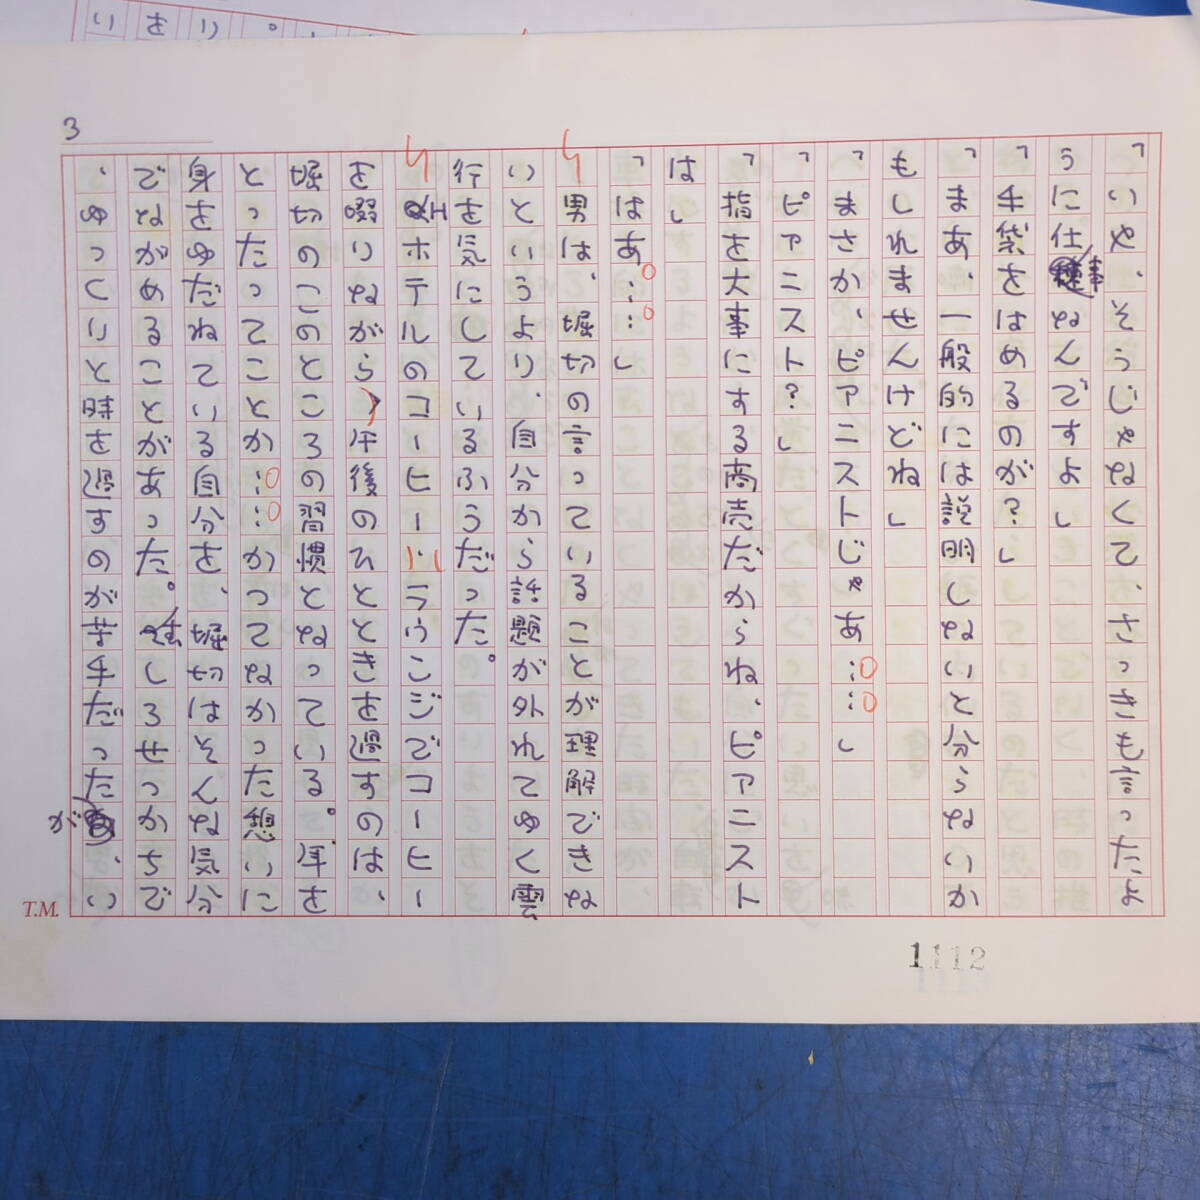 3
「いや、そうじゃなくて、さっきも言ったよ
うに仕事なんですよ」
「手袋をはめるのが?」
「まあ、一般的には説明しないと分らないか
もしれませんけどね」
「まさか、ピアニストじゃあ……」
「ピアニスト?」
「指を大事にする商売だからね、ピアニスト
は」
「はあ……」
男は、堀切の言っていることが理解できな
いというより、自分から話題が外れてゆく雲
行を気にしている ふうだった。
Hホテルのコーヒーラウンジでコーヒー
を啜りながら、午後のひとときを過すのは、
堀切のこのところの習慣となっている。年を
とったってことか……かつてなかった想いに
身をゆだねている自分を、堀切はそんな気分
でながめることがあった。しろせっかちで
、ゆっくりと時を過すのが苦手だったが、い
1112
T.M.